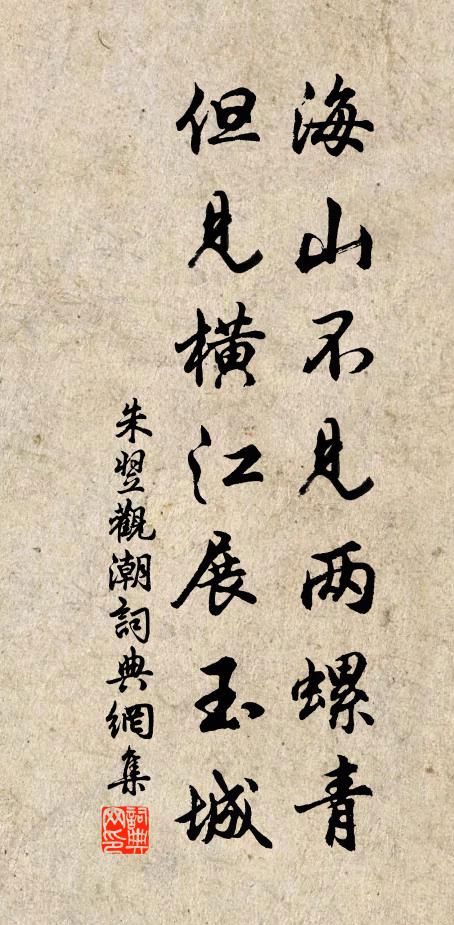 海山不見两螺青
但見横江展玉城
朱翌觀潮詞典網集
詞典网印